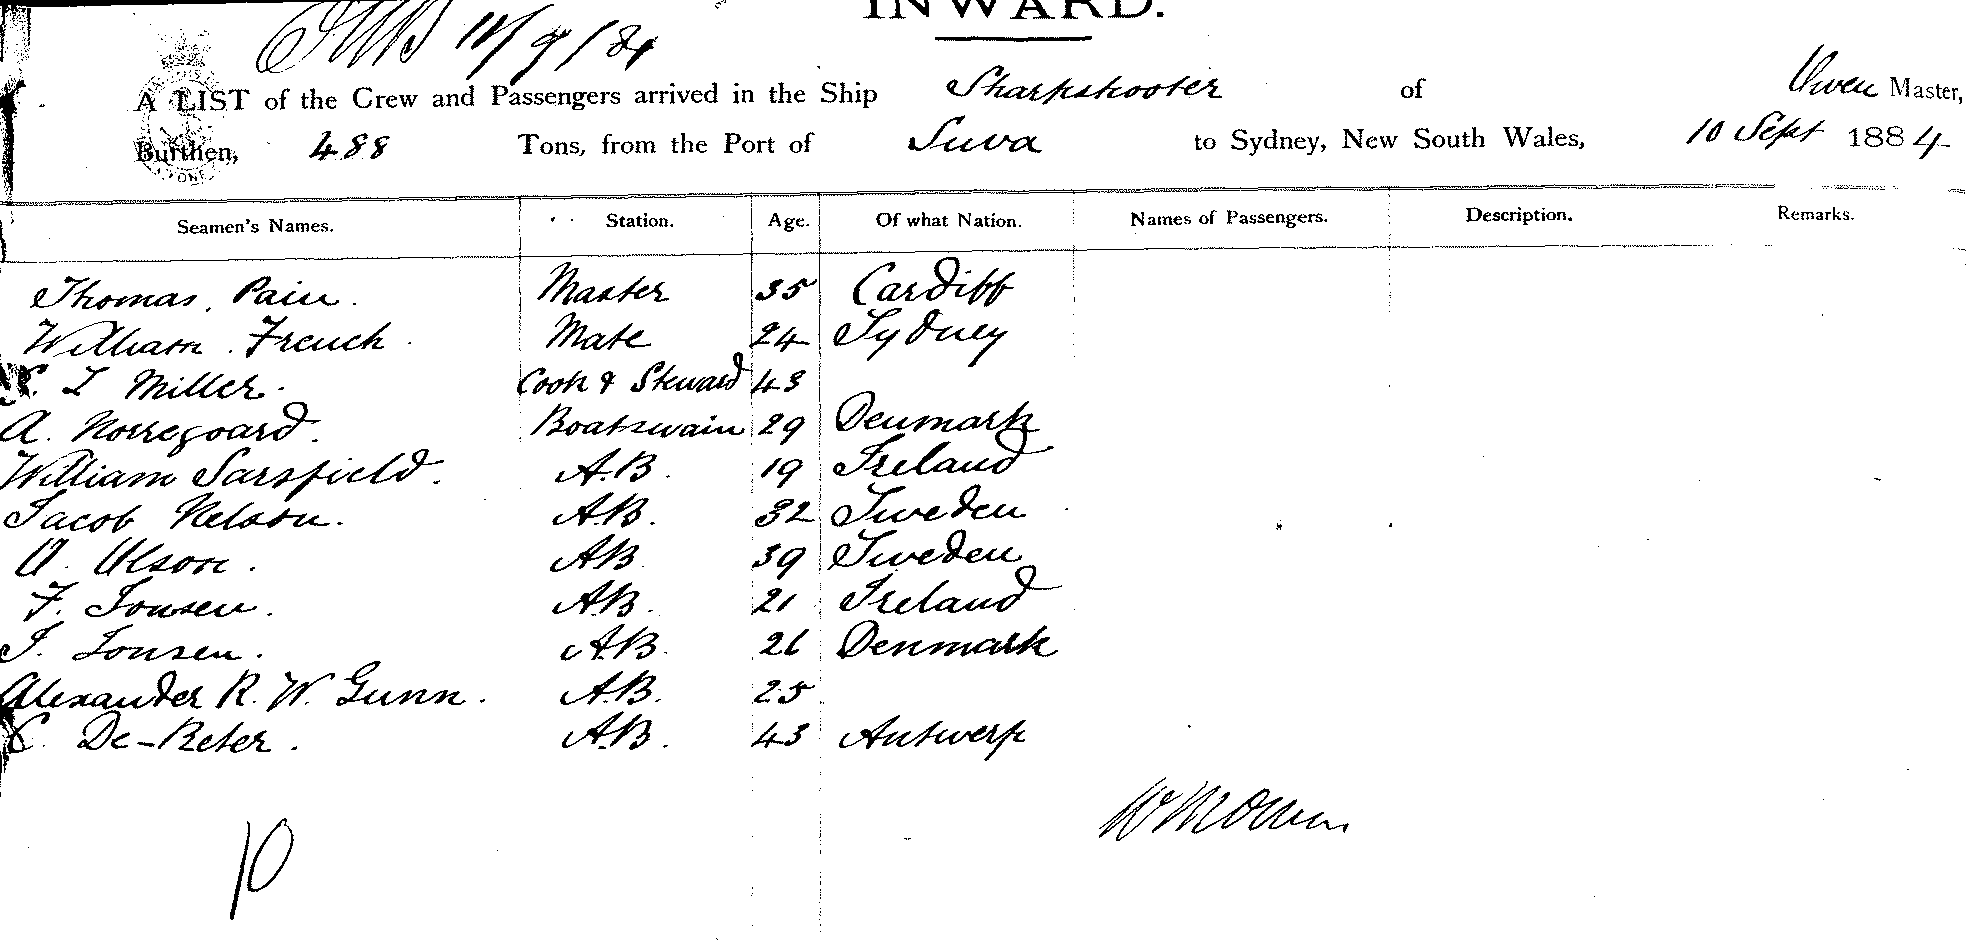 INWARD.
11/9/84
A LIST of the Crew and Passengers arrived in the Ship Sharpshooter of Owen Master,
Burthen, 488 Tons, from the Port of Suva to Sydney, New South Wales, 10 Sept 1884
Seamen's Names. Station. Age. Of what Nation. Names of Passengers. Description. Remarks.
Thomas Pain. Master 35 Cardiff
William French. Mate 24 Sydney
L Miller. Cook & Steward 43
A. Norregoard. Boatswain 29 Denmark
William Sarsfield. A.B. 19 Ireland
Jacob Nelson. A.B. 32 Sweden
A. Olson. AB 39 Sweden
F. Jonsen. A.B. 21 Ireland
J. Jonsen. A.B. 26 Denmark
Alexander R. W. Gunn. A.B. 25
C. De-Reter. A.B. 43 Antwerp
W M Owen
10